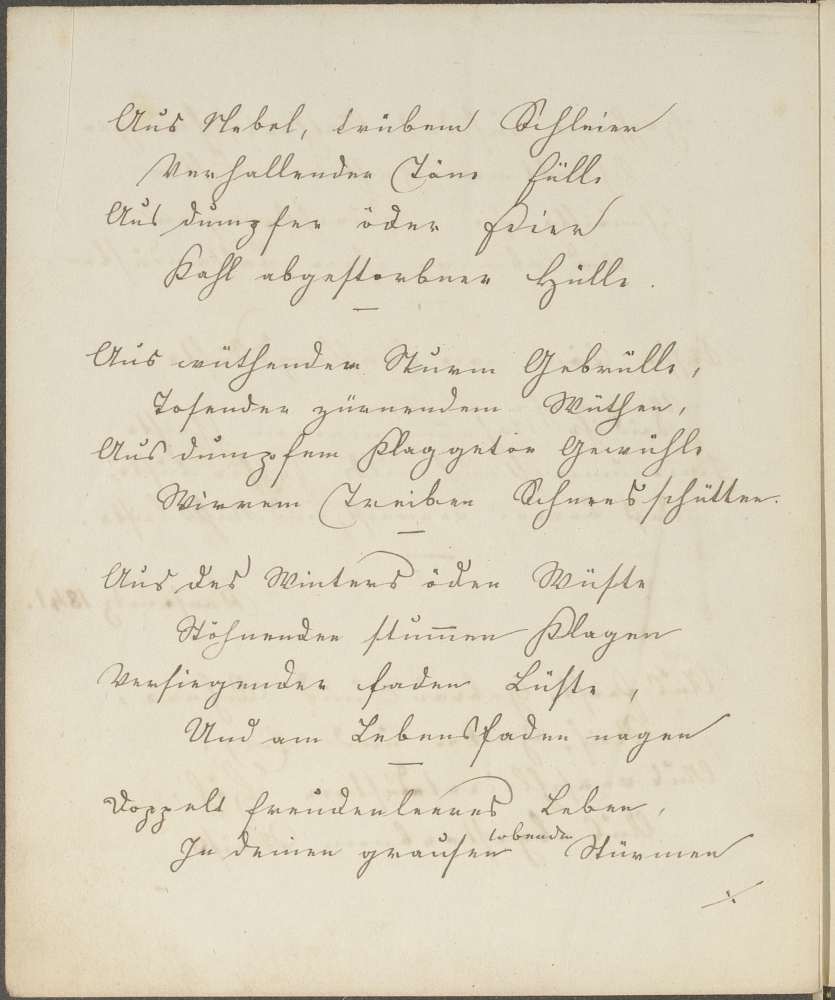 Aus Nebel, trübem Schleier
Verhallender Töne Fülle
Aus dumpfer öder Feier
Kahl abgestorbner Hülle.
Aus wüthenden Sturm Gebrülle,
Tosender zürnendem Wüthen,
Aus dumpfem Klaggetön Gewühle
Wirrem Treiben Schneesschütten.
Aus des Winters öden Wüste
Stöhnenden stummen Klagen
Versiegender faden Lüste,
Und am Lebensfaden nagen
Doppelt freudenleeres Leben,
In deinen grausen tobenden Stürmen